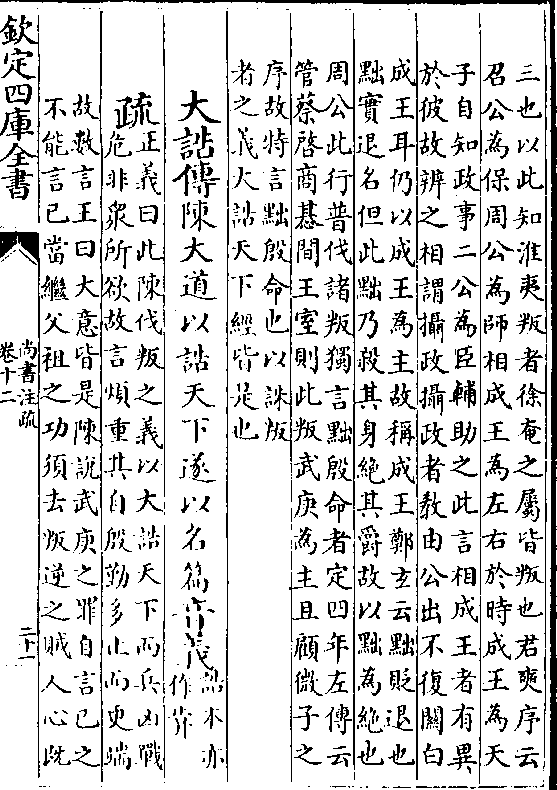 三也以此知淮夷叛者徐奄之屬皆叛也君奭序云
召公為保周公為師相成王為左右於時成王為天
子自知政事二公為臣輔助之此言相成王者有異
於彼故辨之相謂攝政攝政者敎由公出不復關白
成王耳仍以成王為主故稱成王鄭玄云黜貶退也
黜實退名但此黜乃殺其身絕其爵故以黜為絕也
周公此行普伐諸叛獨言黜殷命者定四年左傳云
管蔡啓商惎間王室則此叛武庚為主且顧微子之
序故特言黜殷命也以誅叛
者之義大誥天下經皆是也
大誥傳陳大道以誥天下遂以名篇音義誥本亦
作𢍎
疏正義曰此陳伐叛之義以大誥天下而兵凶戰
危非衆所欲故言煩重其自殷勤多止而更端
故數言王曰大意皆是陳說武庚之罪自言己之
不能言己當繼父祖之功須去叛逆之賊人心既
欽定四庫全書
尚書注疏
卷十二
二十一